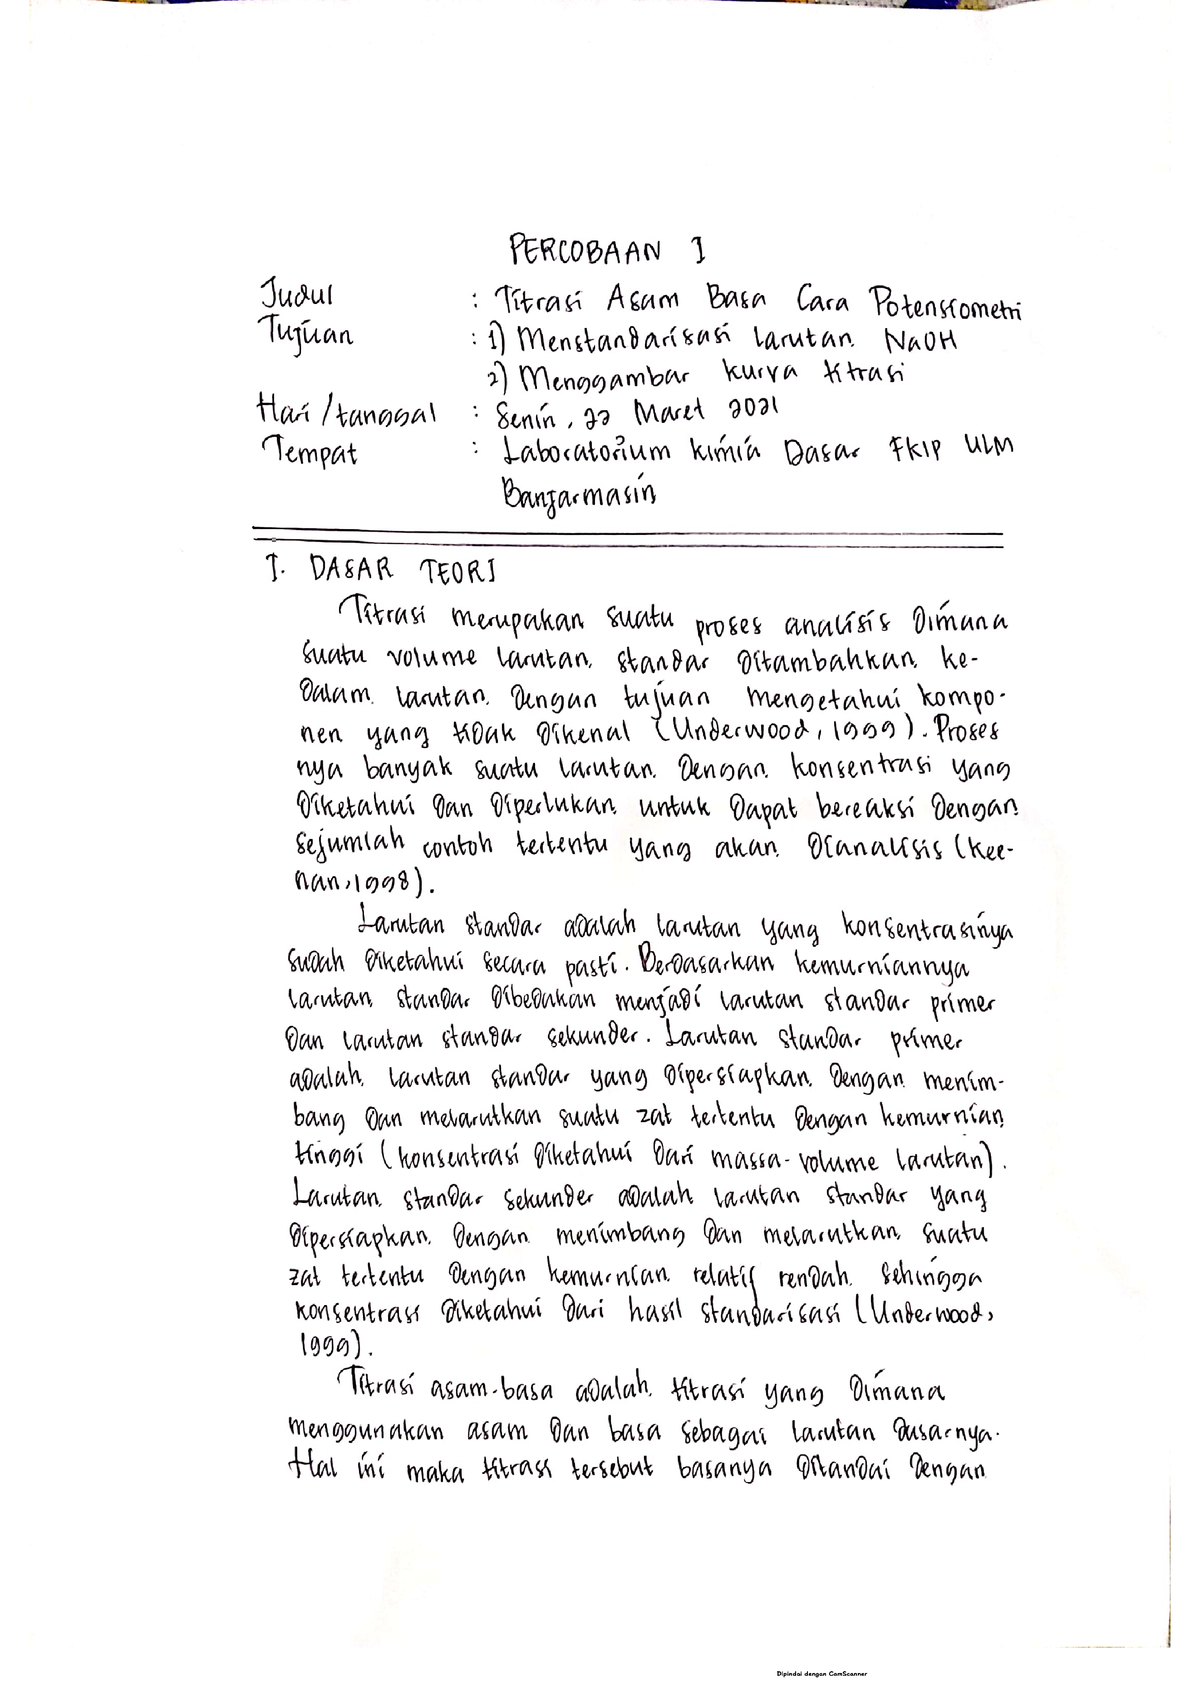 PERCOBAAN I
Judul : Titrasi Asam Basa Cara Potensiometri
Tujuan : 1) Menstandarisasi larutan NaOH
2) Menggambar kurva titrasi
Hari/tanggal : Senin, 22 Maret 2021
Tempat : Laboratorium kimia Dasar FKIP ULM
Banjarmasin
I. DASAR TEORI
Titrasi merupakan suatu proses analisis dimana
suatu volume larutan standar ditambahkan ke-
dalam larutan dengan tujuan mengetahui kompo-
nen yang tidak dikenal (Underwood, 1999). Proses
nya banyak suatu larutan dengan konsentrasi yang
diketahui dan diperlukan untuk dapat bereaksi dengan
sejumlah contoh tertentu yang akan dianalisis (Kee-
nan, 1998).
Larutan standar adalah larutan yang konsentrasinya
sudah diketahui secara pasti. Berdasarkan kemurniannya
larutan standar dibedakan menjadi larutan standar primer
dan larutan standar sekunder. Larutan standar primer
adalah larutan standar yang dipersiapkan dengan menim-
bang dan melarutkan suatu zat tertentu dengan kemurnian
tinggi (konsentrasi diketahui dari massa-volume larutan).
Larutan standar sekunder adalah larutan standar yang
dipersiapkan dengan menimbang dan melarutkan suatu
zat tertentu dengan kemurnian relatif rendah sehingga
konsentrasi diketahui dari hasil standarisasi (Underwood,
1999).
Titrasi asam-basa adalah titrasi yang dimana
menggunakan asam dan basa sebagai larutan dasarnya.
Hal ini maka titrasi tersebut basanya ditandai dengan
Dipindai dengan CamScanner